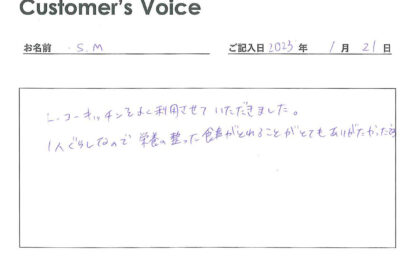 Customer's Voice
お名前 S.M ご記入日 2023 年 1 月 21 日
キッチンをよく利用させていただきました。
1人ぐらしなので 栄養の整った食事がとれることがとてもありがたかった